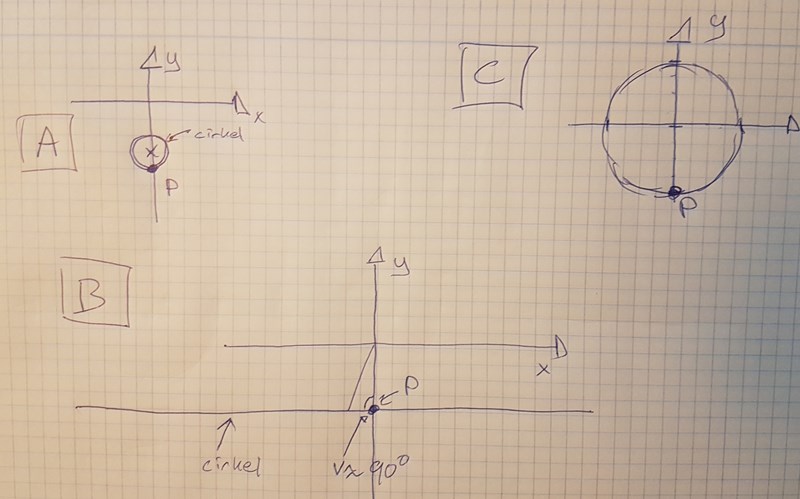 y
C
y
A
x
cirkel
x
P
P
B
y
x
P
cirkel
V≈90°